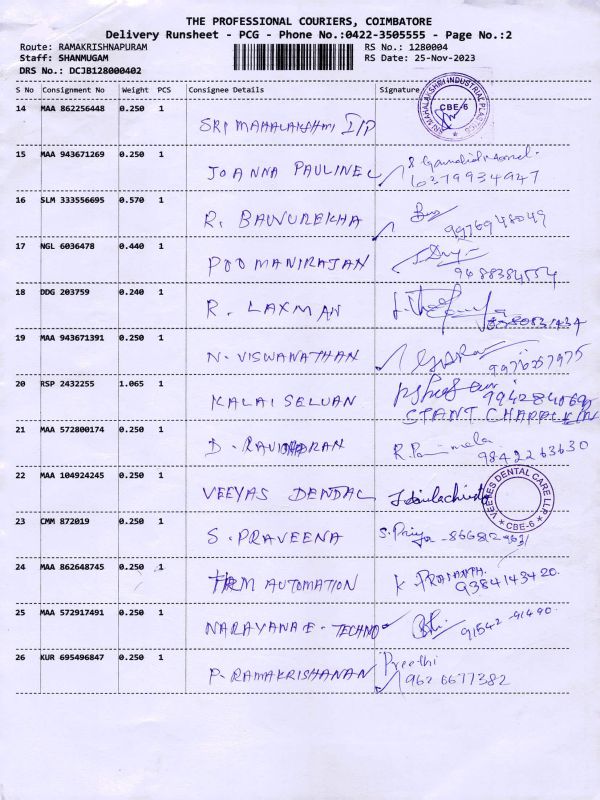 THE PROFESSIONAL COURIERS, COIMBATORE
Delivery Runsheet - PCG - Phone No.:0422-3505555 - Page No.:2
Route: RAMAKRISHNAPURAM RS No.: 1280004
Staff: SHANMUGAM RS Date: 25-Nov-2023
DRS No.: DCJB128000402
S No Consignment No Weight PCS Consignee Details Signature
14 MAA 862256448 0.250 1
SRI MAHALAKSHMI I/P
SRI MAHALAKSHMI INDUSTRIAL PLASTICS CBE-6
15 MAA 943671269 0.250 1
JOANNA PAULINE
6379934947
16 SLM 333556695 0.570 1
R. BAVUREKHA
9976948049
17 NGL 6036478 0.440 1
POOMANIRAJAN
9688384554
18 DDG 203759 0.240 1
R. LAXMAN
19 MAA 943671391 0.250 1
N. VISWANATHAN
20 RSP 2432255 1.065 1
KALAI SELVAN
21 MAA 572800174 0.250 1
D.
R.
9842263630
22 MAA 104924245 0.250 1
VEEYAS DENTAL
VEEYES DENTAL CARE LLP CBE-6
23 CMM 872019 0.250 1
S. PRAVEENA
S. Priya
24 MAA 862648745 0.250 1
HRM AUTOMATION
K. PRASANTH.
9384143420.
25 MAA 572917491 0.250 1
NARAYANA E-TECHNO
91542-91490
26 KUR 695496847 0.250 1
P. RAMAKRISHANAN
Preethi
9626677382